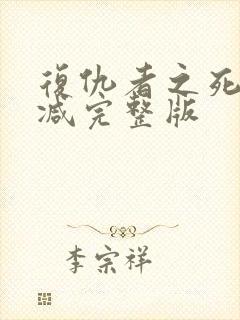 復仇者之死
减完整版
李宗祥